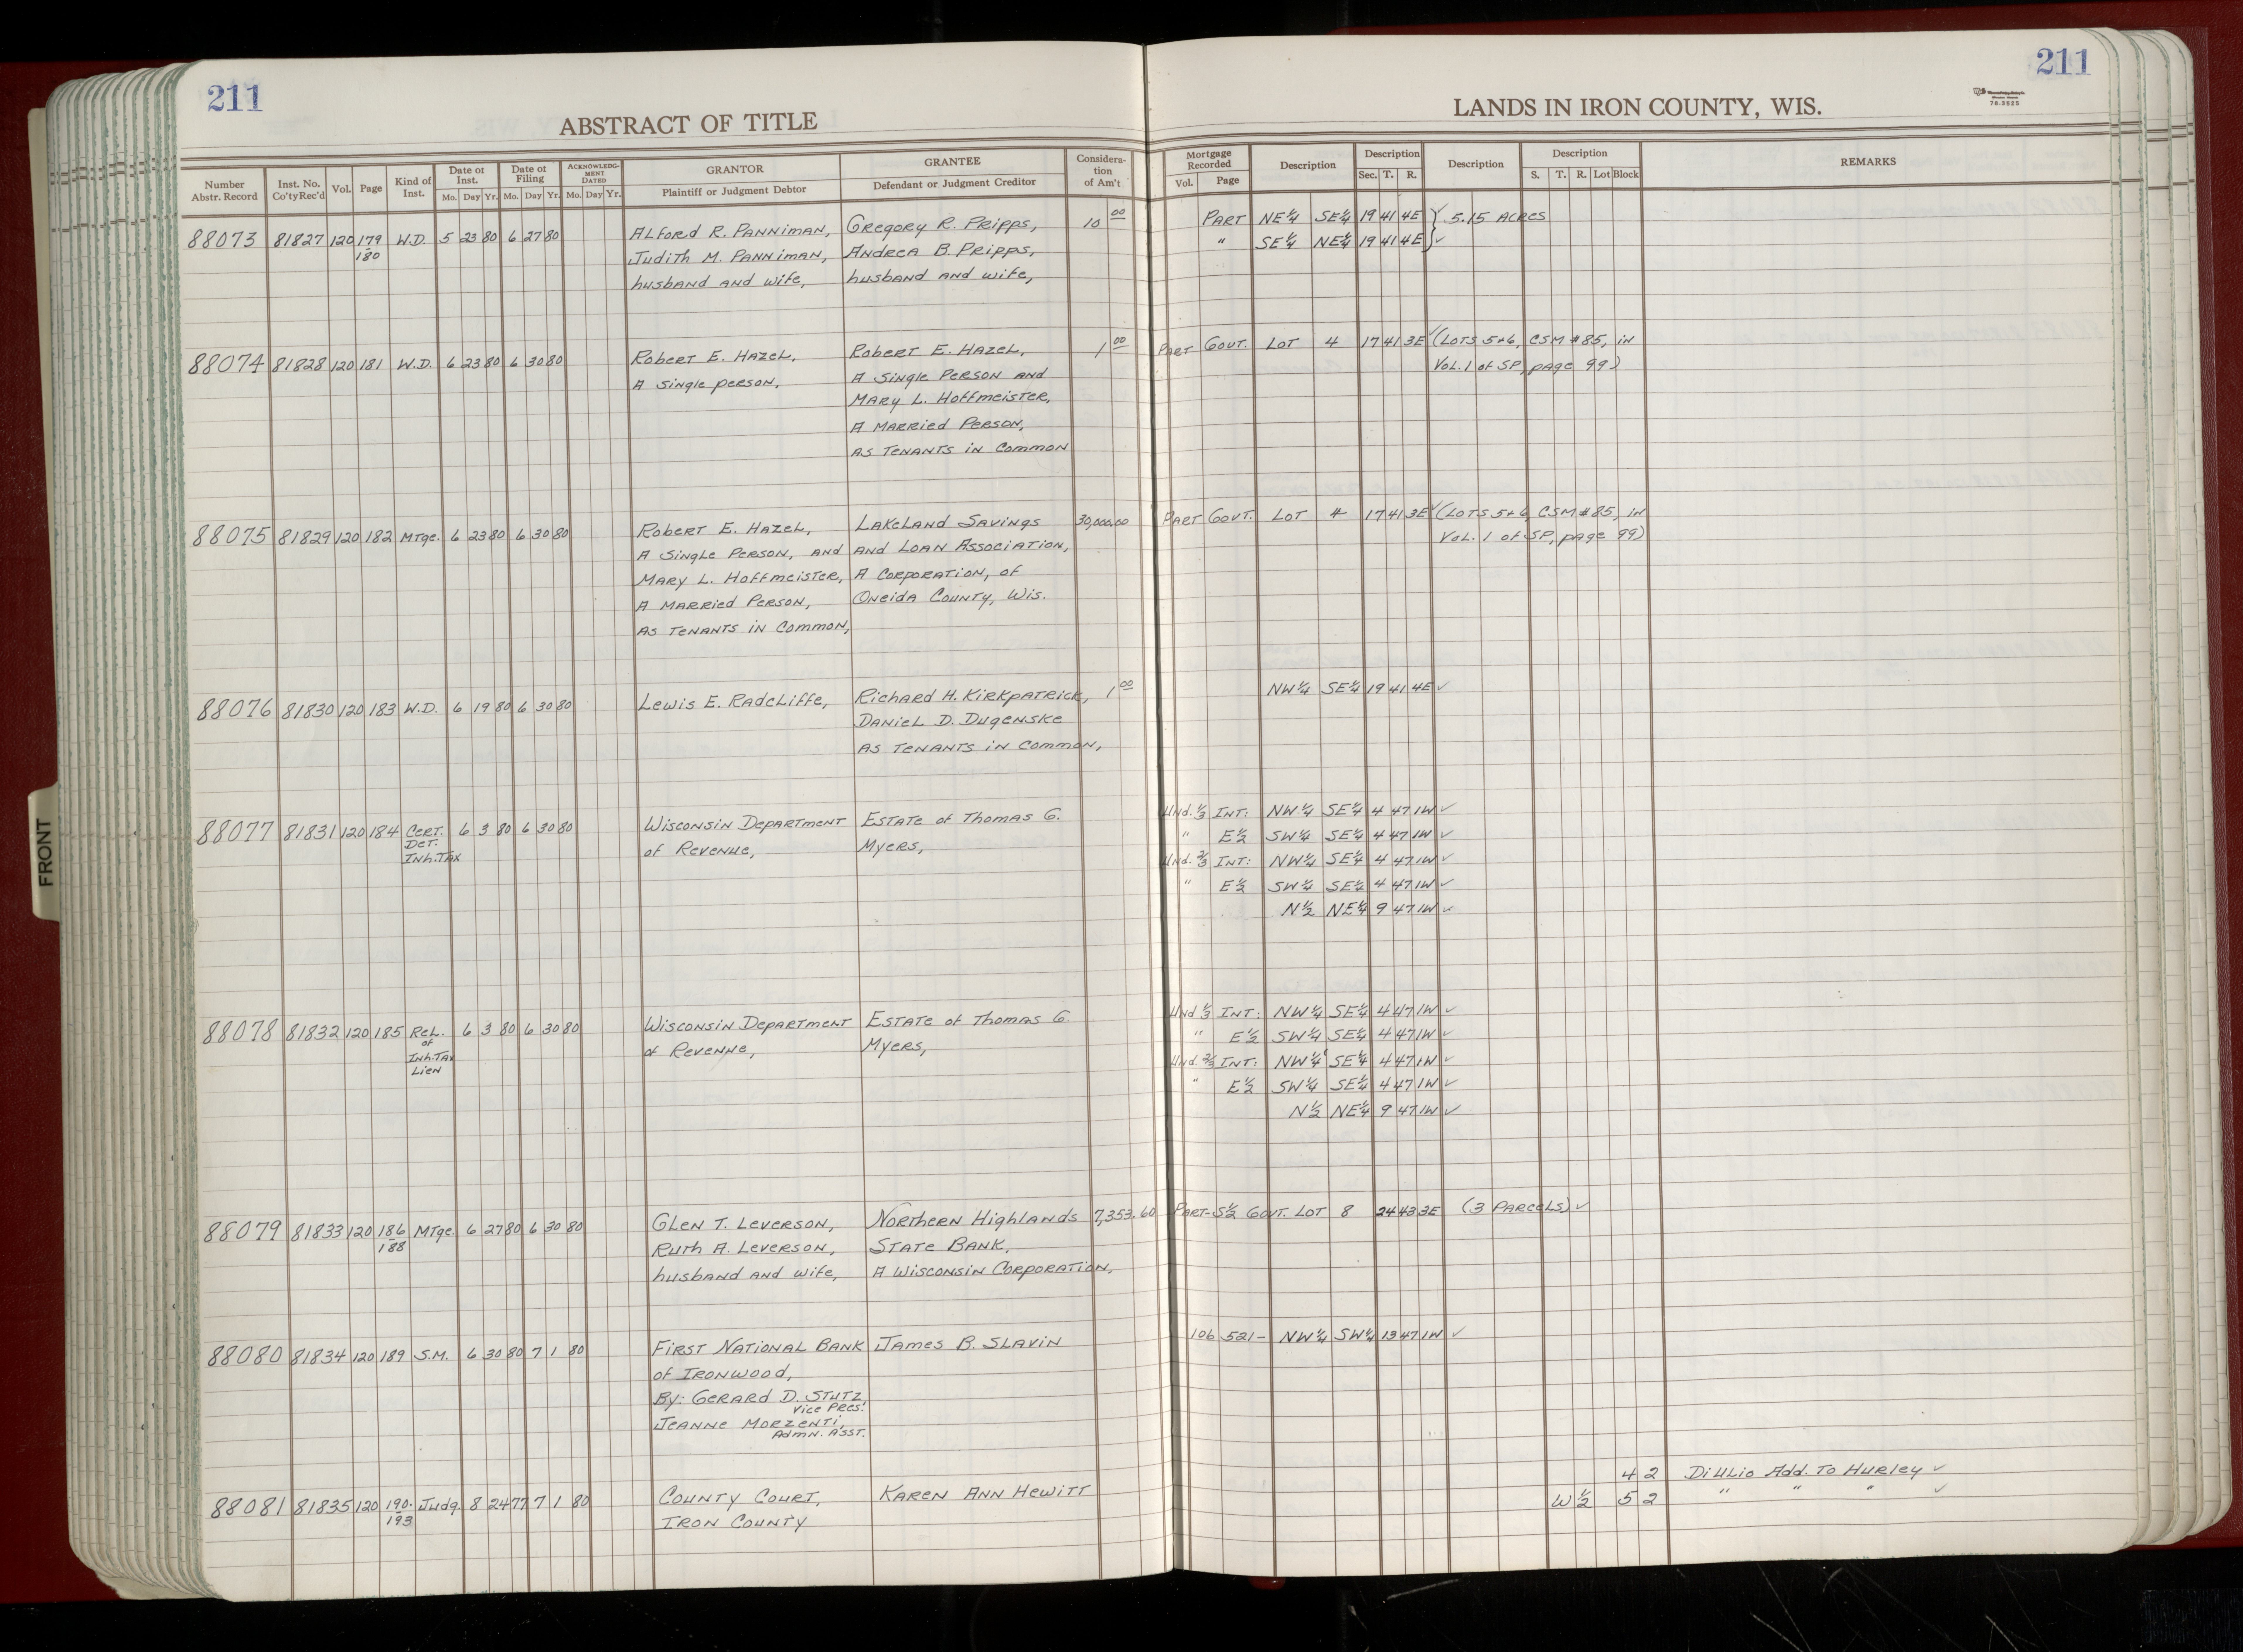 211
211
ABSTRACT OF TITLE
LANDS IN IRON COUNTY, WIS.
76-3525
Number Abstr. Record | Inst. No. Co'ty Rec'd | Vol. | Page | Kind of Inst. | Date of Inst. Mo. Day Yr. | Date of Filing Mo. Day Yr. | ACKNOWLEDGMENT DATED Mo. Day Yr. | GRANTOR Plaintiff or Judgment Debtor | GRANTEE Defendant or Judgment Creditor | Consideration of Am't | Mortgage Recorded Vol. Page | Description | Description Sec. T. R. | Description | Description S. T. R. Lot Block | REMARKS
88073 81827 120 179 W.D. 5 23 80 6 27 80 Alford R. Panniman, Gregory R. Pripps, 10 00 Part NE¼ SE¼ 19 41 4E ✓ 5.15 Acres
180 Judith M. Panniman, Andrea B. Pripps, " SE¼ NE¼ 19 41 4E ✓
husband and wife, husband and wife,
88074 81828 120 181 W.D. 6 23 80 6 30 80 Robert E. Hazel, Robert E. Hazel, 1 00 Part Govt. Lot 4 17 41 3E ✓ (Lots 5+6, CSM #85, in
A Single Person, A Single Person and Vol. 1 of SP, page 99)
Mary L. Hoffmeister,
A Married Person,
as Tenants in Common
88075 81829 120 182 Mtge. 6 23 80 6 30 80 Robert E. Hazel, Lakeland Savings 30,000.00 Part Govt. Lot 4 17 41 3E ✓ (Lots 5+6, CSM #85, in
A Single Person, and and Loan Association, Vol. 1 of SP, page 99)
Mary L. Hoffmeister, A Corporation, of
A Married Person, Oneida County, Wis.
as Tenants in Common,
88076 81830 120 183 W.D. 6 19 80 6 30 80 Lewis E. Radcliffe, Richard H. Kirkpatrick, 1 00 NW¼ SE¼ 19 41 4E ✓
Daniel D. Dugenske
as Tenants in Common,
88077 81831 120 184 Cert. 6 3 80 6 30 80 Wisconsin Department Estate of Thomas G. Und. ⅓ Int: NW¼ SE¼ 4 47 1W ✓
Det. of Revenue, Myers, " E½ SW¼ SE¼ 4 47 1W ✓
Inh. Tax Und. ⅔ Int: NW¼ SE¼ 4 47 1W ✓
" E½ SW¼ SE¼ 4 47 1W ✓
N½ NE¼ 9 47 1W ✓
88078 81832 120 185 Rel. 6 3 80 6 30 80 Wisconsin Department Estate of Thomas G. Und ⅓ Int: NW¼ SE¼ 4 47 1W ✓
of of Revenue, Myers, " E½ SW¼ SE¼ 4 47 1W ✓
Inh. Tax Und. ⅔ Int: NW¼ SE¼ 4 47 1W ✓
Lien " E½ SW¼ SE¼ 4 47 1W ✓
N½ NE¼ 9 47 1W ✓
88079 81833 120 186 Mtge. 6 27 80 6 30 80 Glen T. Leverson, Northern Highlands 7,353.60 Part- S½ Govt. Lot 8 24 43 3E (3 Parcels) ✓
188 Ruth A. Leverson, State Bank,
husband and wife, A Wisconsin Corporation,
88080 81834 120 189 S.M. 6 30 80 7 1 80 First National Bank James B. Slavin 106 521- NW¼ SW¼ 13 47 1W ✓
of Ironwood,
By: Gerard D. Stutz,
Vice Pres.
Jeanne Morzenti,
Admn. Asst.
4 2 DiUlio Add. To Hurley ✓
88081 81835 120 190- Judg. 8 24 77 7 1 80 County Court, Karen Ann Hewitt W½ 5 2 " " " ✓
193 Iron County
FRONT